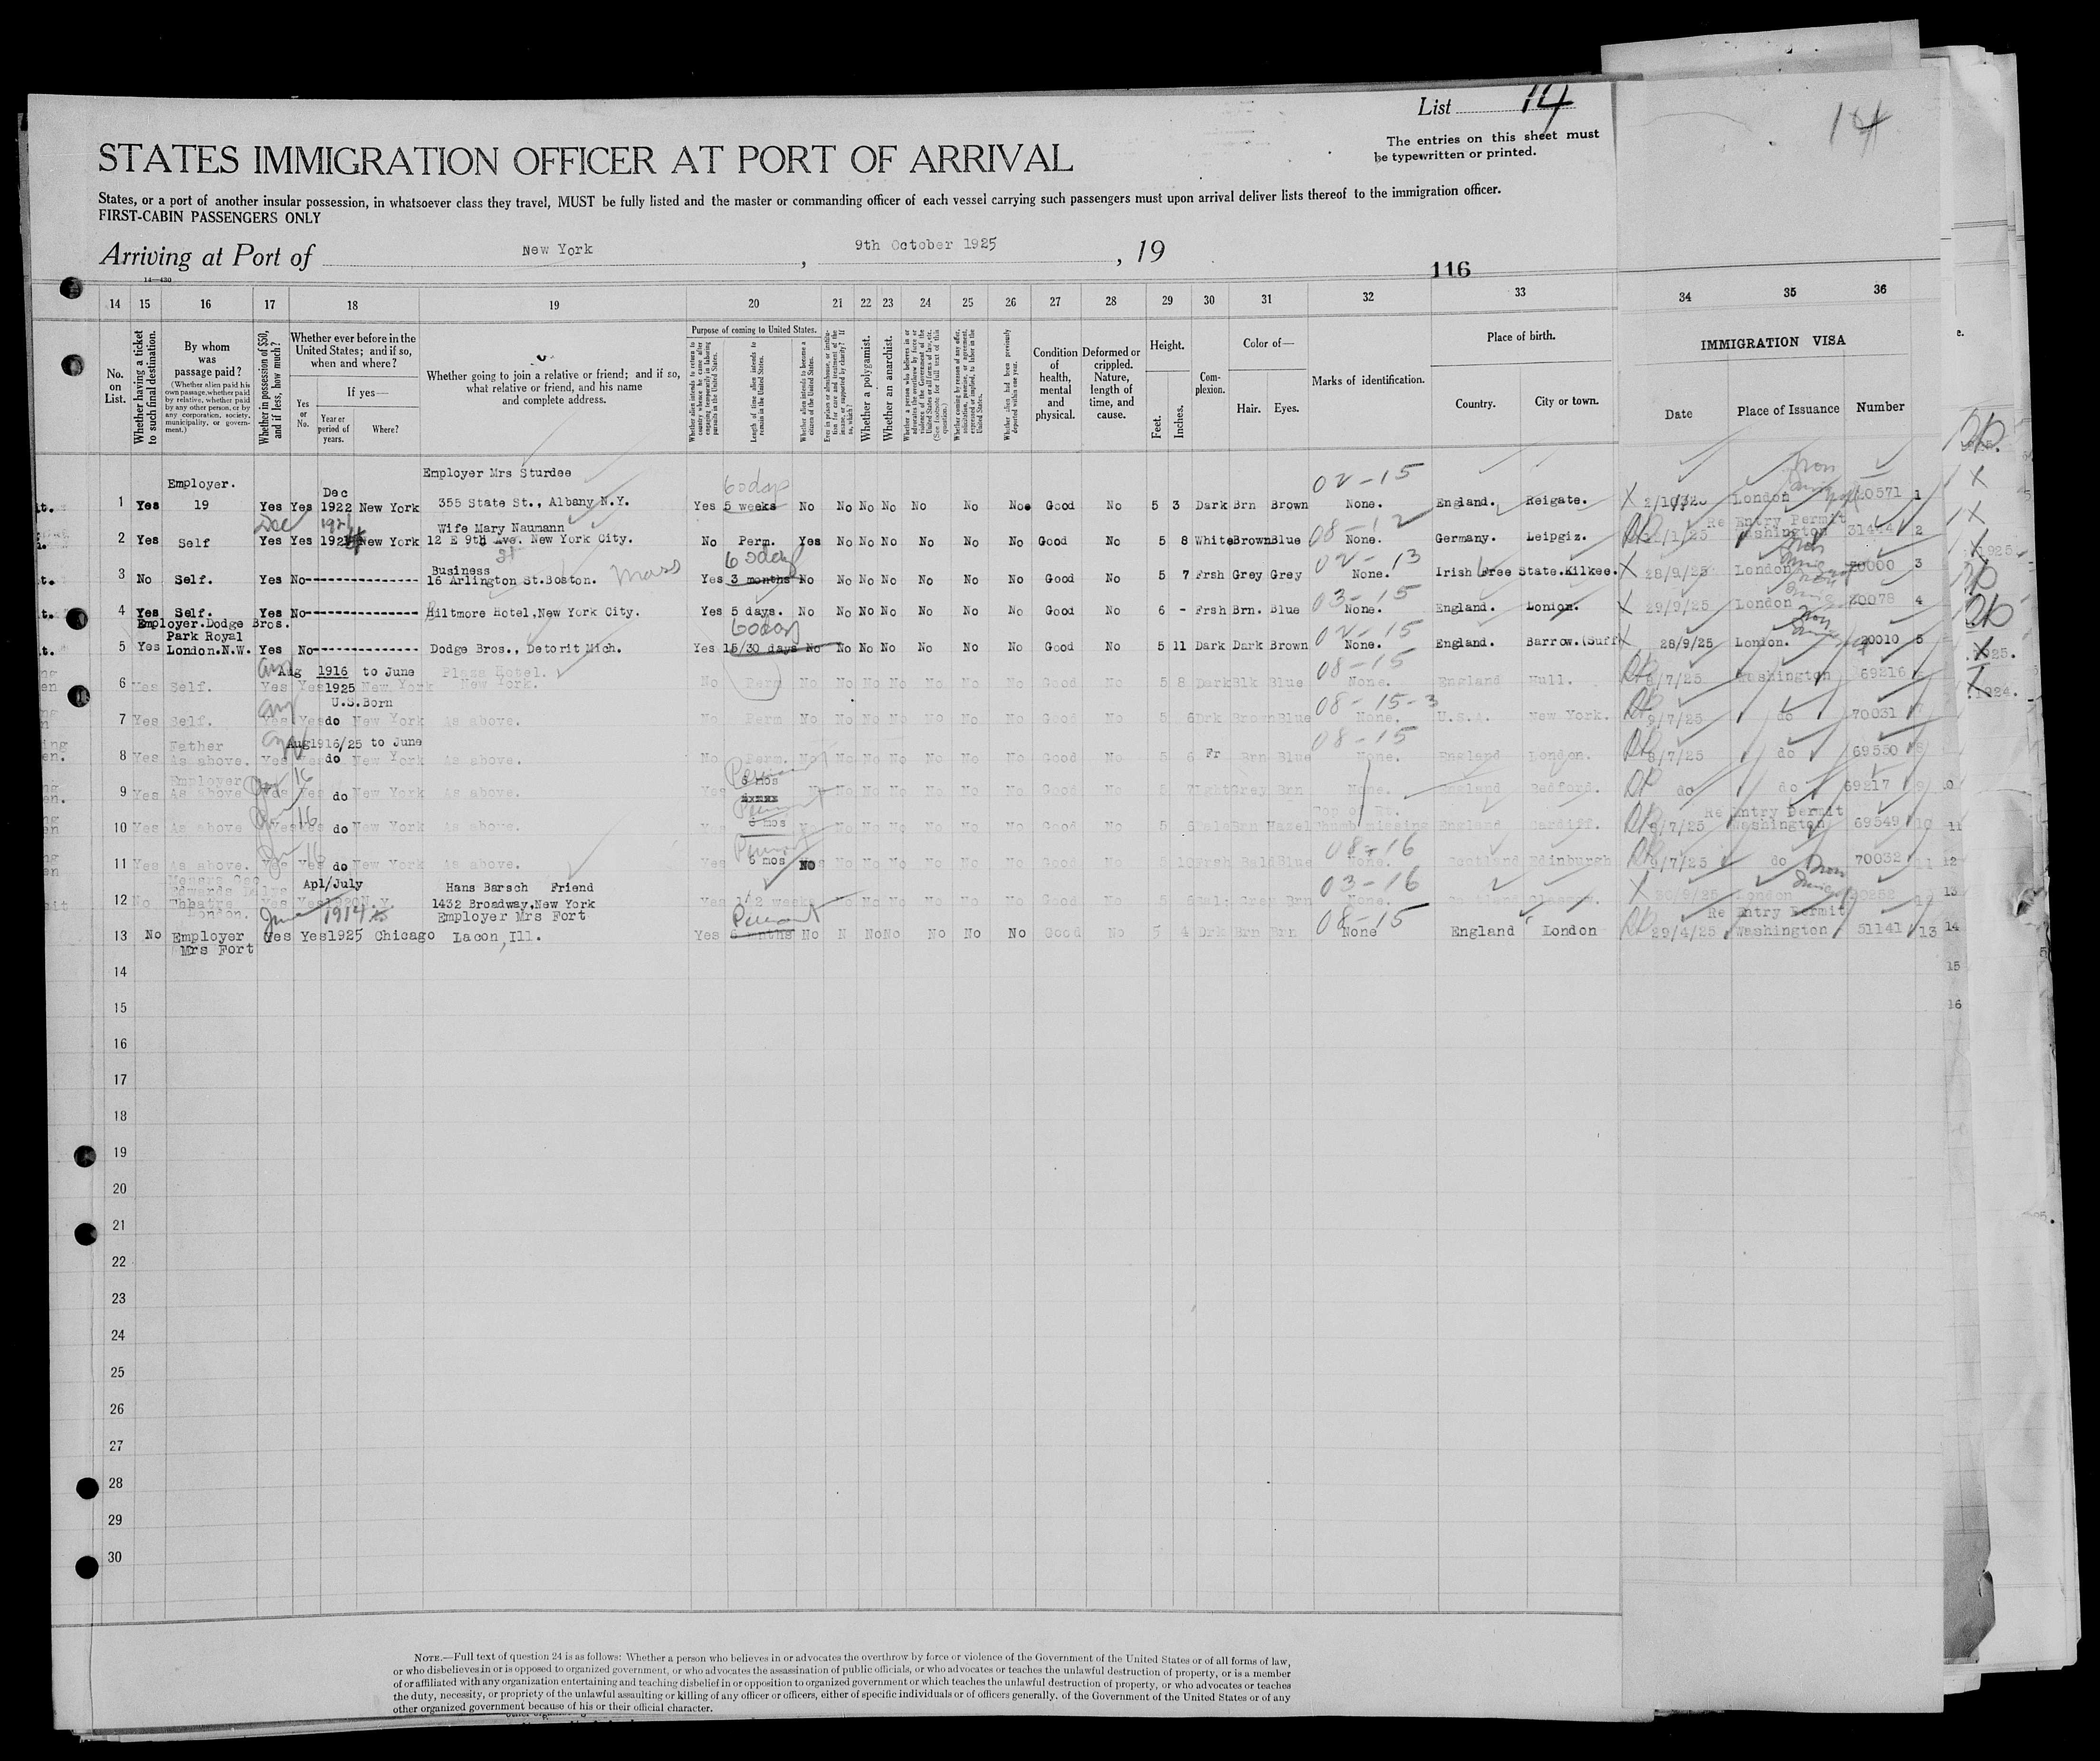 List 14
14
The entries on this sheet must
be typewritten or printed.
STATES IMMIGRATION OFFICER AT PORT OF ARRIVAL
States, or a port of another insular possession, in whatsoever class they travel, MUST be fully listed and the master or commanding officer of each vessel carrying such passengers must upon arrival deliver lists thereof to the immigration officer.
FIRST-CABIN PASSENGERS ONLY
Arriving at Port of New York, 9th October 1925, 19
116
14 15 16 17 18 19 20 21 22 23 24 25 26 27 28 29 30 31 32 33 34 35 36
No. on List.
Whether having a ticket to such final destination.
By whom was passage paid?
(Whether alien paid his own passage, whether paid by relative, whether paid by any other person, or by any corporation, society, municipality, or government.)
Whether in possession of $50, and if less, how much?
Whether ever before in the United States; and if so, when and where?
If yes—
Yes or No.
Year or period of years.
Where?
Whether going to join a relative or friend; and if so, what relative or friend, and his name and complete address.
Purpose of coming to United States.
Length of time alien intends to remain in the United States.
Whether alien intends to become a citizen of the United States.
Whether a polygamist.
Whether an anarchist.
Condition of health, mental and physical.
Deformed or crippled. Nature, length of time, and cause.
Height.
Feet.
Inches.
Complexion.
Color of—
Hair.
Eyes.
Marks of identification.
Place of birth.
Country.
City or town.
IMMIGRATION VISA
Date
Place of Issuance
Number
Employer Mrs Sturdee
Employer. Dec 60 days 02-15
1 Yes 19 Yes Yes 1922 New York 355 State St., Albany N.Y. Yes 5 weeks No No No No No No No Good No 5 3 Dark Brn Brown None. England. Reigate. London 20571 1
Dec 1921 Wife Mary Naumann 08-12 Re Entry Permit
2 Yes Self Yes Yes New York 12 E 9th Ave. New York City. No Perm. Yes No No No No No No Good No 5 8 White Brown Blue None. Germany. Leipgiz. Washington 2
Business st Mass 60 days 02-13
3 No Self. Yes No 16 Arlington St.Boston. Yes 3 months No No No No No No No Good No 5 7 Frsh Grey Grey None. Irish Free State.Kilkee. X 28/9/25 London 3
03-15
4 Yes Self. Yes No Biltmore Hotel,New York City. Yes 5 days. No No No No No No No Good No 6 - Frsh Brn. Blue None. England. London. X 29/9/25 London 20078 4
Employer.Dodge Bros.
Park Royal 60 days 02-15
5 Yes London.N.W. Yes No Dodge Bros., Detorit Mich. Yes 15/30 days No No No No No No No Good No 5 11 Dark Dark Brown None. England. Barrow.(Suff X 28/9/25 London. 20010 5
Aug 1916 to June Plaza Hotel. 08-15
6 Yes Self. Yes Yes 1925 New York New York. No Perm No No No No No No No Good No 5 8 Dark Blk Blue None. England Hull. 8/7/25 Washington 69216 6
U.S.Born 08-15-3
7 Yes Self. Yes Yes do New York As above. No Perm No No No No No No No Good No 5 6 Drk Brown Blue None. U.S.A. New York. 9/7/25 do 70031 7
Father Aug1916/25 to June 08-15
8 Yes As above. Yes Yes do New York As above. No Perm. No No No No No No No Good No 5 6 Fr Brn Blue None. England London. 8/7/25 do 69550 8
Employer
9 Yes As above Yes Yes do New York As above. Yes 6 mos No No No No No No No Good No 5 7 Lght Grey Brn None. England Bedford. do do 69217 9
Top of Rt. Re Entry Permit
10 Yes As above Yes Yes do New York As above. 6 mos No No No No No No Good No 5 6 Hazel Thumb missing England Cardiff. 9/7/25 Washington 69549 10
08-16
11 Yes As above. Yes Yes do New York As above. Yes 6 mos No No No No No No No Good No 5 10 Frsh Bald Blue None. Scotland Edinburgh 9/7/25 do 70032 11
Apl/July Hans Barsch Friend 03-16
12 No Theatre London. Yes Yes N.Y. 1432 Broadway.New York Yes 1/2 weeks No No No No No No Good No 5 Grey Brn None. Scotland X 30/9/25 London 20252 12
June 1914 to Employer Mrs Fort 08-15 Re Entry Permit
13 No Employer Yes Yes 1925 Chicago Lacon, Ill. Yes No N No No No No No Good No 5 4 Drk Brn Brn None England London 29/4/25 Washington 51141 13
Mrs Fort
14
15
16
17
18
19
20
21
22
23
24
25
26
27
28
29
30
NOTE.—Full text of question 24 is as follows: Whether a person who believes in or advocates the overthrow by force or violence of the Government of the United States or of all forms of law,
or who disbelieves in or is opposed to organized government, or who advocates the assassination of public officials, or who advocates or teaches the unlawful destruction of property, or is a member
of or affiliated with any organization entertaining and teaching disbelief in or opposition to organized government or which teaches the unlawful destruction of property, or who advocates or teaches
the duty, necessity, or propriety of the unlawful assaulting or killing of any officer or officers, either of specific individuals or of officers generally, of the Government of the United States or of any
other organized government because of his or their official character.